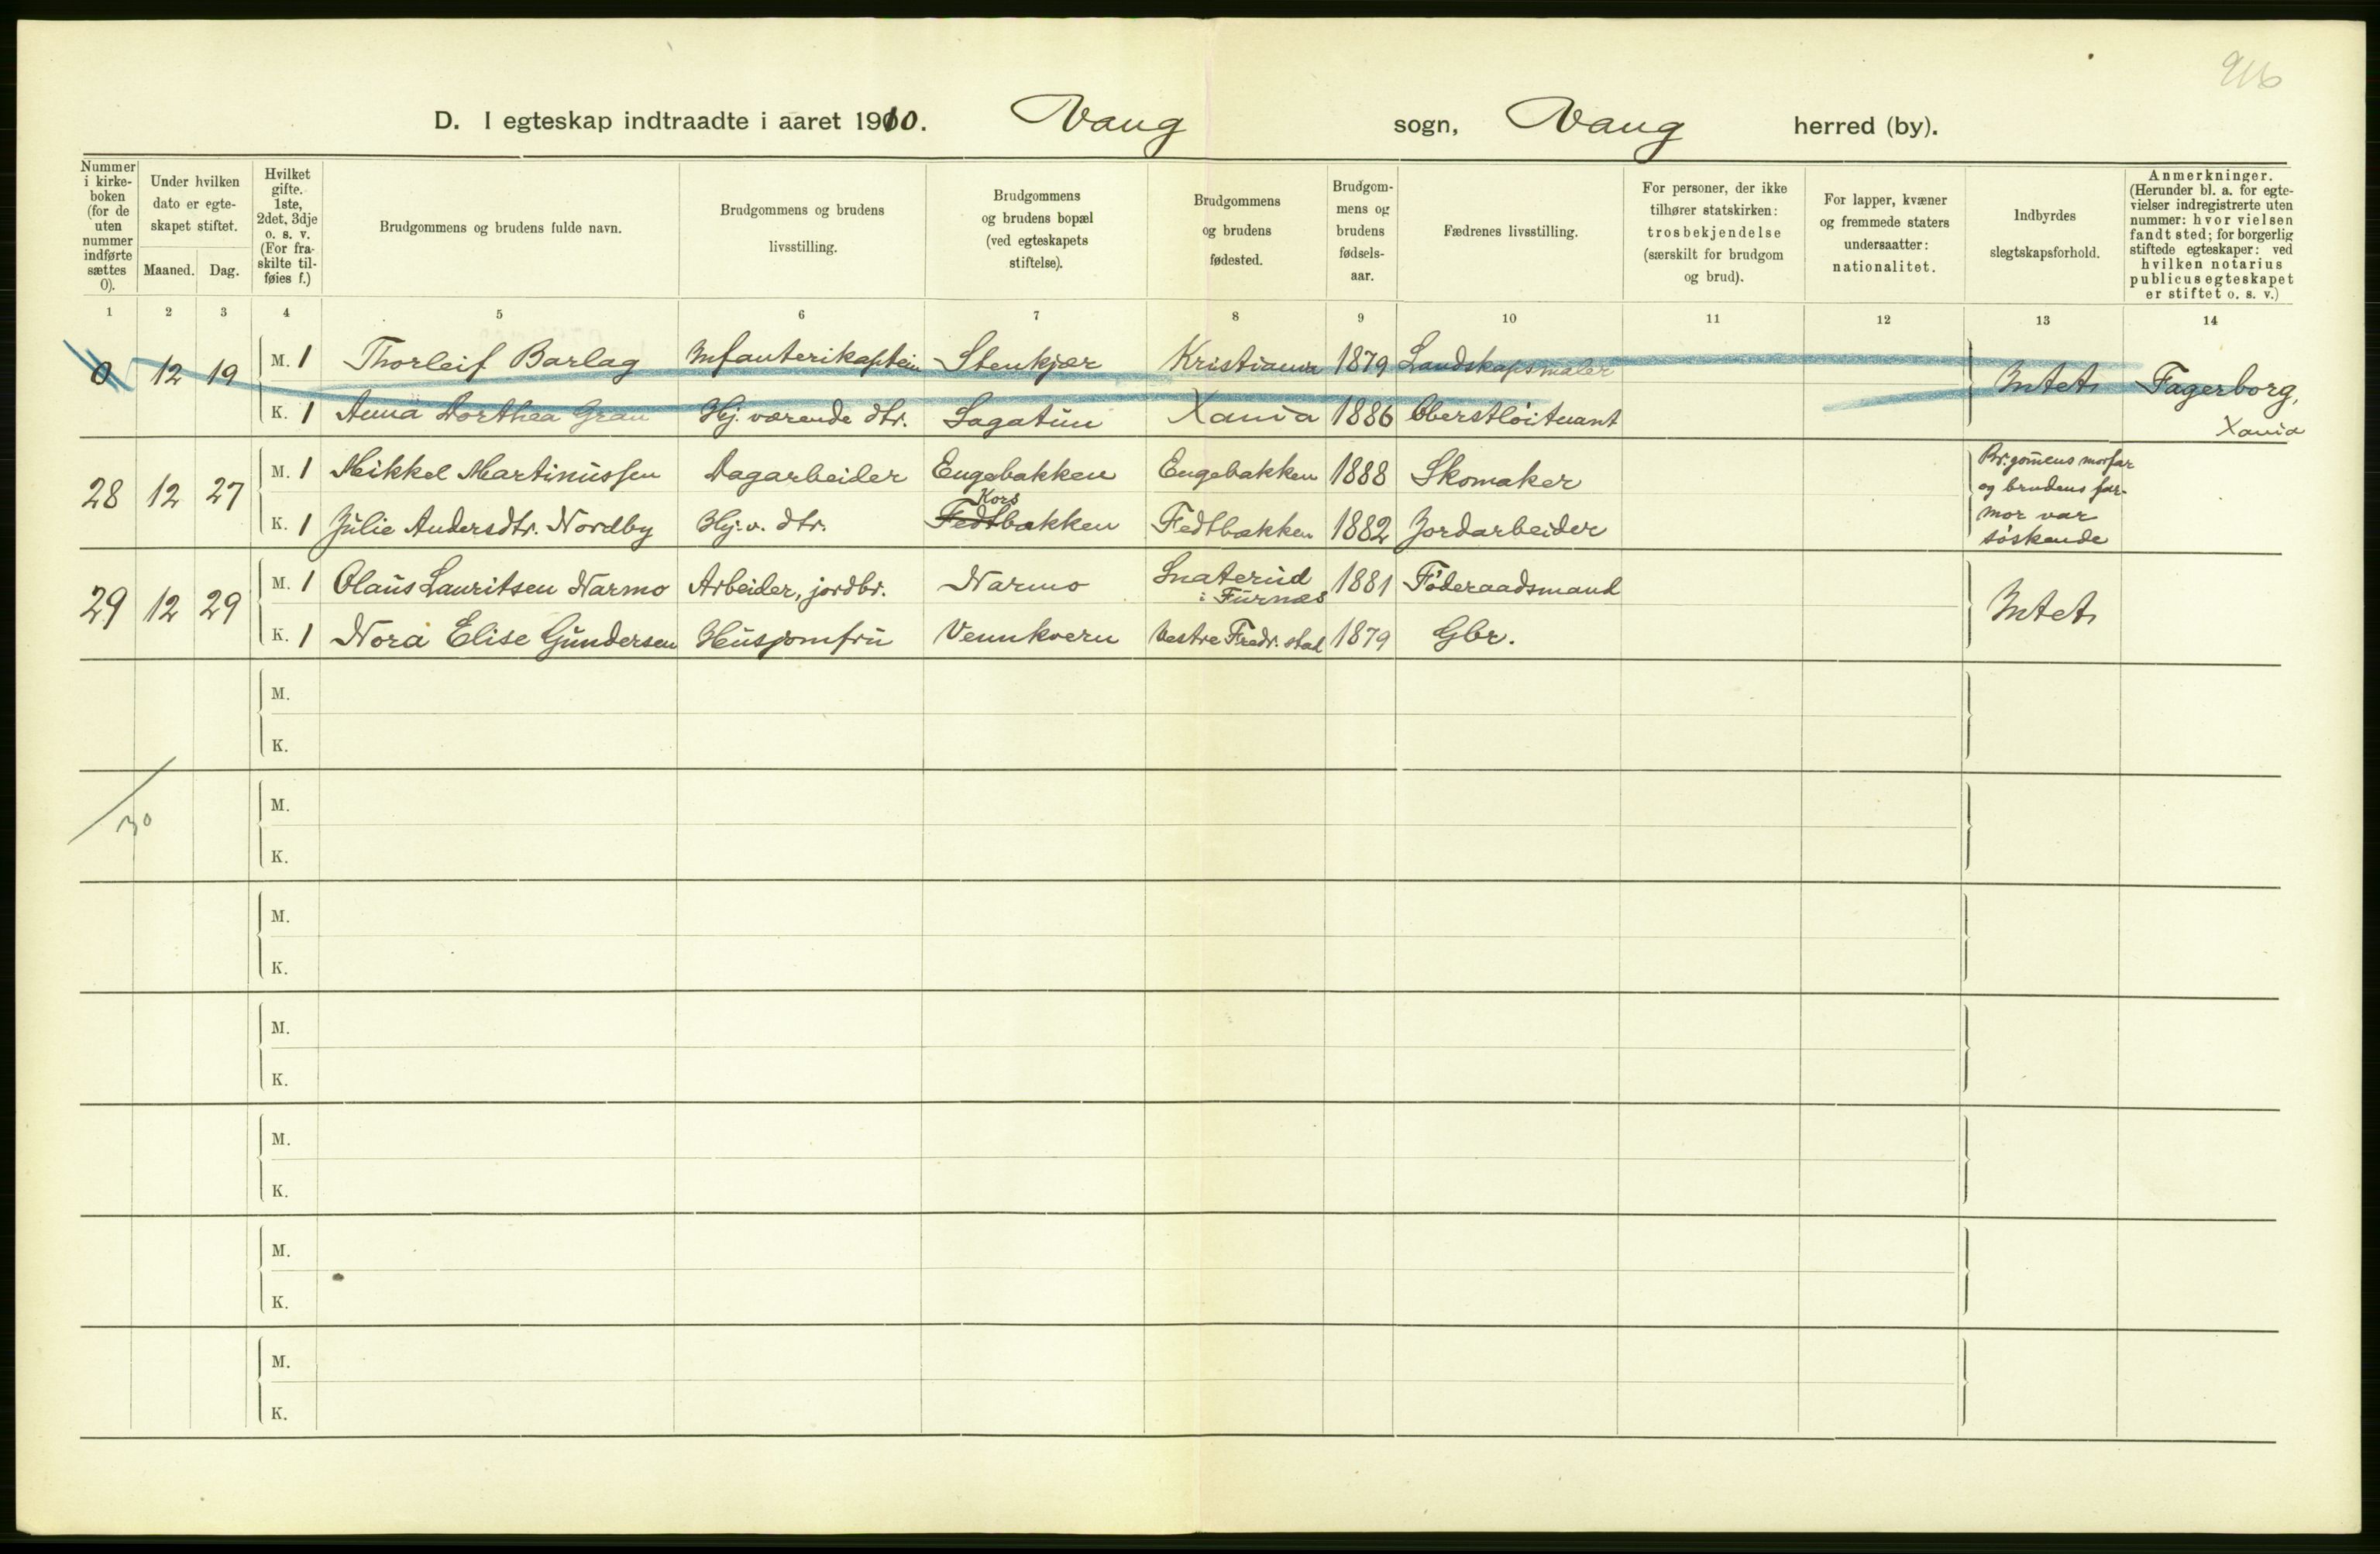 916
D. I egteskap indtraadte i aaret 1910. Vang sogn, Vang herred (by).
Nummer i kirke-boken (for de uten nummer indførte sættes 0).
Under hvilken dato er egte-skapet stiftet.
Maaned. Dag.
Hvilket gifte. 1ste, 2det, 3dje o. s. v. (For fra-skilte til-føies f.)
Brudgommens og brudens fulde navn.
Brudgommens og brudens livsstilling.
Brudgommens og brudens bopæl (ved egteskapets stiftelse).
Brudgommens og brudens fødested.
Brudgom-mens og brudens fødsels-aar.
Fædrenes livsstilling.
For personer, der ikke tilhører statskirken: trosbekjendelse (særskilt for brudgom og brud).
For lapper, kvæner og fremmede staters undersaatter: nationalitet.
Indbyrdes slegtskapsforhold.
Anmerkninger. (Herunder bl. a. for egte-vielser indregistrerte uten nummer: hvor vielsen fandt sted; for borgerlig stiftede egteskaper: ved hvilken notarius publicus egteskapet er stiftet o. s. v.)
1 2 3 4 5 6 7 8 9 10 11 12 13 14
0 12 19 M. 1 Thorleif Barlag Infanterikaptein Stenkjær Kristiania 1879 Landskapsmaler Intet Fagerborg, Xania
K. 1 Anna Dorthea Gran Hj. værende dtr. Sagatun Xania 1886 Oberstløitnant
28 12 27 M. 1 Mikkel Martinussen Dagarbeider Engebakken Engebakken 1888 Skomaker Br.gomens morfar og brudens far-mor var søskende
K. 1 Julie Andersdtr. Nordby Hj. v. dtr. Fedtbakken Kors Fedtbakken 1882 Jordarbeider
29 12 29 M. 1 Olaus Lauritsen Narmo Arbeider, jordbr. Narmo Snaterud i Furnes 1881 Føderaadsmand Intet
K. 1 Nora Elise Gundersen Husjomfru Vennkvern Vestre Fredr. stad 1879 Gbr.
M.
K.
30
M.
K.
M.
K.
M.
K.
M.
K.
M.
K.
M.
K.